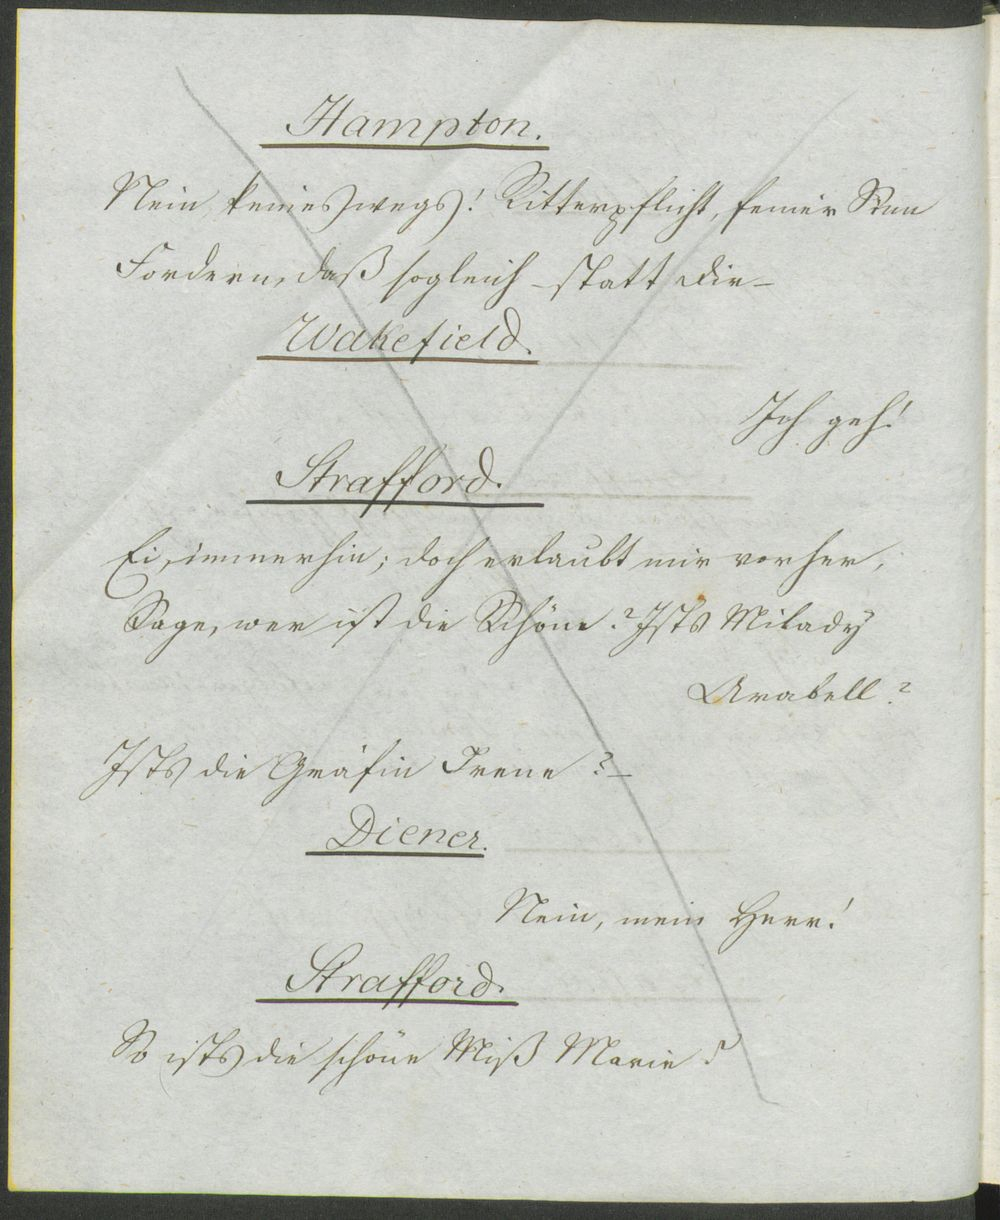 Hampton.
Nein keineswegs! Ritterpflicht, feiner Sinn
Fordern, daß sogleich – statt dir –
Wakefield.
Ich geh!
Strafford.
Ei, immerhin; doch erlaubt mir vorher,
Sage, wer ist die Schöne? Ists Milady
Arabell?
Ists die Gräfin Irene? –
Diener.
Nein, mein Herr!
Strafford.
So ists die schöne Miß Marie?